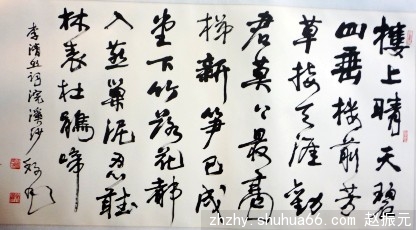 樓上晴天碧
四垂樓前芳
草接天涯勸
君莫上最高
梯新笋已成
堂下竹落花都
入燕巢泥忍聽
林表杜鵑啼
李清照詞浣溪沙
zhzhy.shuhua66.com 赵振元